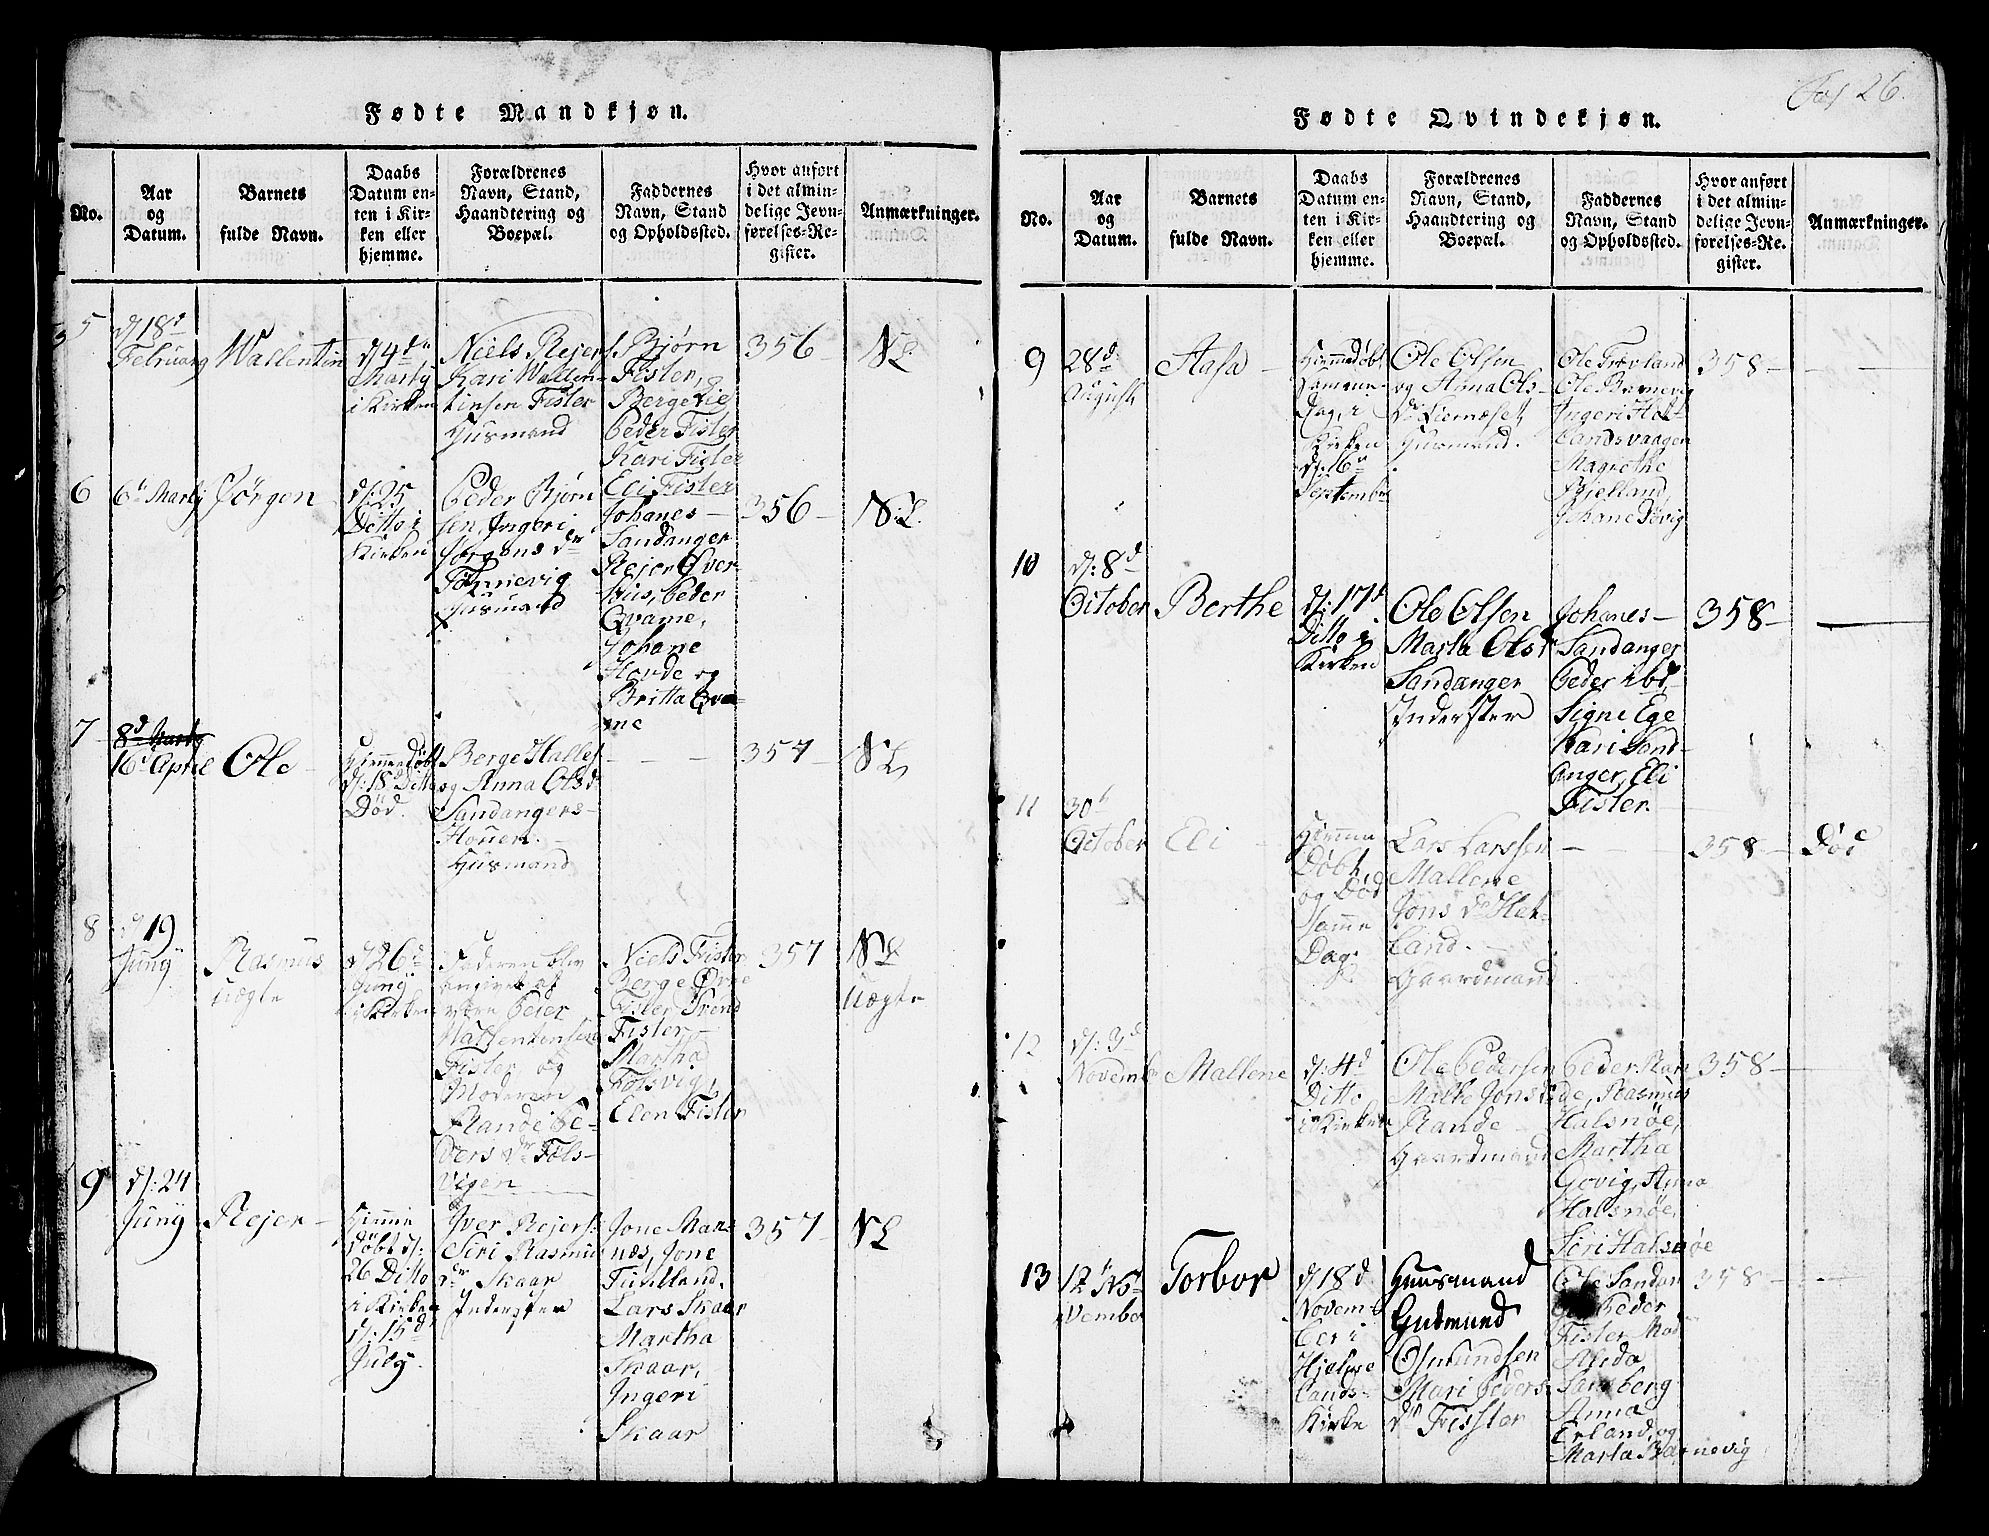 Fol 26.
Fødte Mandkjøn.
No.
Aar
og
Datum.
Barnets
fulde Navn.
Daabs
Datum en-
ten i Kir-
ken eller
hjemme.
Forældrenes
Navn, Stand,
Haandtering og
Boepæl.
Faddernes
Navn, Stand
og Opholdssted.
Hvor anført
i det almin-
delige Jevn-
førelses-Re-
gister.
Anmærkninger.
5
d/18d
February
Wallentin
d/4de
Marty
i Kirken
Niels Rejers.
Kari Wallen-
tinsen Fister
Husmand
Bjørn
Fister,
Berge Lie
Peder Fister
Kari Fister
Eli Fister
356
NL
6
6d Marty
Jørgen
d/:25
Ditto i
Kirken
Peder Bjørn
sen, Ingeri
Jørgens dr
Tønnevig
Husmand
Johanes
Sandanger
Rejer Øver-
Hus, Peder
Qvame,
Johane
Horde og
Britta Qva-
me
356
NL.
7
8d Marty
16d Aprie
Ole
Hiemedøbt
d/:18d Ditto
Død.
Berge Halles
og Anna Olsd
Sandangers-
Houen.
Husmand
357
NL
8
d 19
Juny
Rasmus
Uægte
d/26d
Juny
i Kirken
Faderen blev
angivet at
være Peier
Wallentinsen
Fister, og
Moderen
Randi Pe-
ders dr Føls-
vigen
Niels Fister
Berge Øvre
Fister Trond
Fister
Martha
Følsvig,
Elen Fister
357
NL
Uægte
9
d/:24
Juny
Rejer
Hiemme
Døbt d/:
26 Ditto
i Kirken
d/:15d
July.
Iver Rejers:
Siri Rasmus
dr Skaar
Inderster
Jone Mar-
næs, Jone
Tuhland.
Lars Skaar
Martha
Skaar,
Ingeri
Skaar
357
NL
Fødte Qvindekjøn.
No.
Aar
og
Datum.
Barnets
fulde Navn.
Daabs
Datum en-
ten i Kir-
ken eller
hjemme.
Forældrenes
Navn, Stand,
Haandtering og
Boepæl.
Faddernes
Navn, Stand
og Opholdssted.
Hvor anført
i det almin-
delige Jevn-
førelses-Re-
gister.
Anmærkninger.
9
28d
Augusti
Aasa
Hiemedøbt
Samme
Dag, i
Kirken
d/:6d
September
Ole Olsen
og Anna Ols-
dr Liernæset
Husmand.
Ole Trovland
Ole Barnevig
Ingeri Het-
landsvaagen
Magrethe
Bjelland,
Johane Døvig
358
10
d/:8d
October
Berthe
d/:17d
Ditto i
Kirken
Ole Olsen
Marta Olsdr
Sandanger
Inderster
Johanes
Sandanger
Peder ibd,
Signe Ege
Kari Sand-
anger, Eli
Fister.
358
11
30d
October
Eli
Hiemme
Døbt,
og Død
samme
Dag.
Lars Larssen
Mallene
Jons dr Het-
land.
Gaardmand
358
Død
12
d/:3d
Novemb
Mallene
d/:4d
Ditto
i Kirken
Ole Pedersen
Malle Jons
Rande
Gaardmand
Peder Ran
de, Rasmus
Halsnøe,
Martha
Govig, Anna
Halsnøe,
Siri Halsnøe
358
13
12d No-
vember
Torbor
d/18d.
Novem-
ber i
Hjelme
lands-
Kirke
Huusmand
Gudmund
Osmundsen
Mari Peders
dr Fisster
Ole Sandan
Peder
Fister Mad
Alida
Sandberg
Anna
Erland, og
Marta Barnevig
358